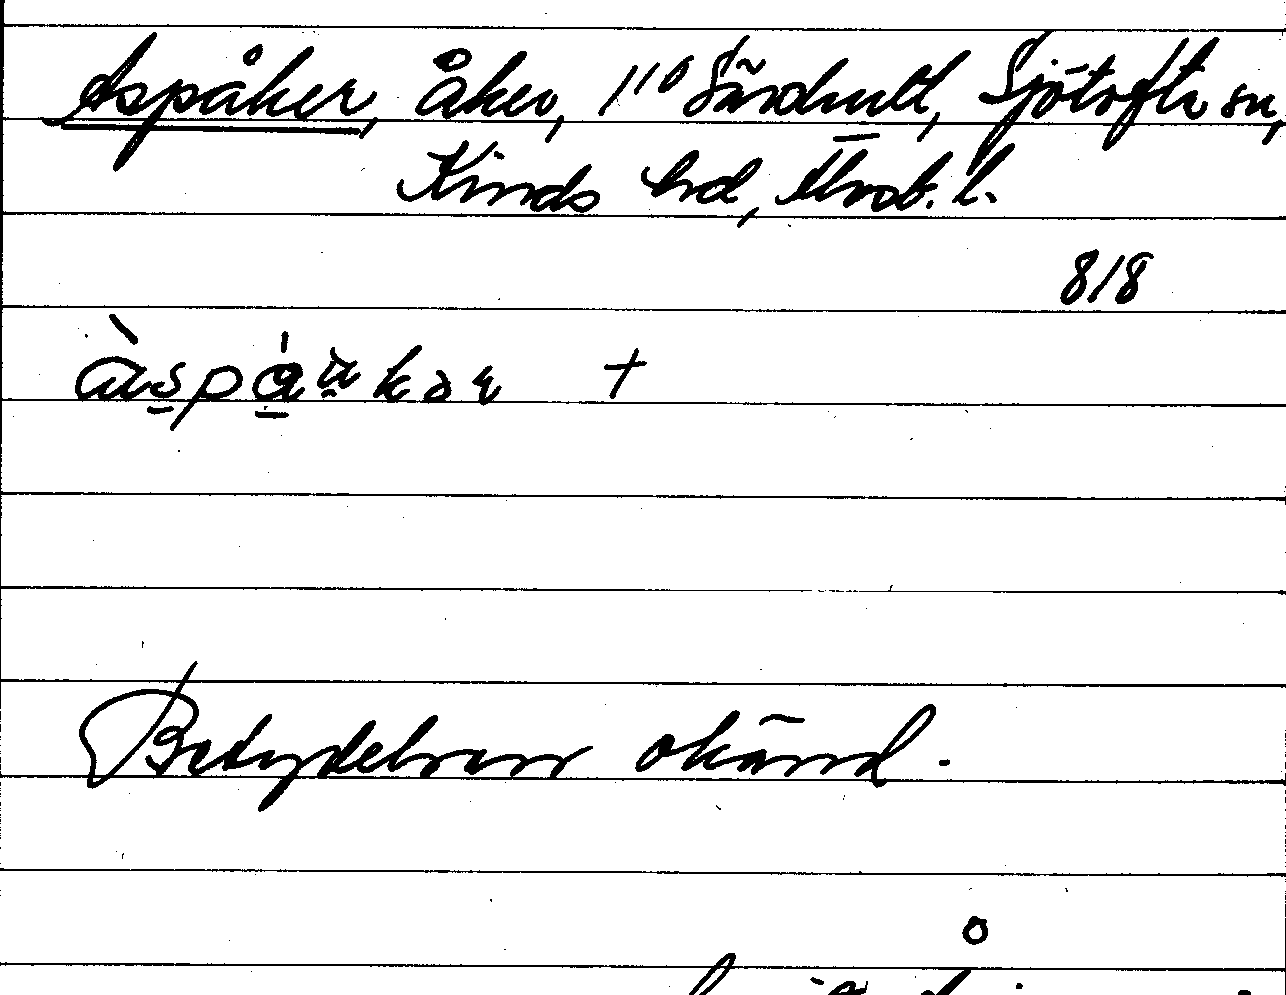 Aspåker, åker, 1/10 Sändhult, Sjötofta sn,
Kinds hd, Älvsb. l.
818
àspáu̯kər +
Betydelsen okänd.